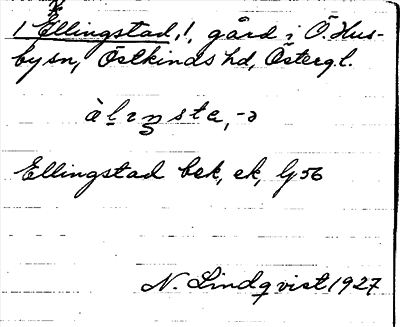 1 Ellingstad, !, gård i Ö. Hus-
by sn, Östkinds hd, Östergl.
Ellingstad bek, ek, Gj 56
N. Lindqvist 1927